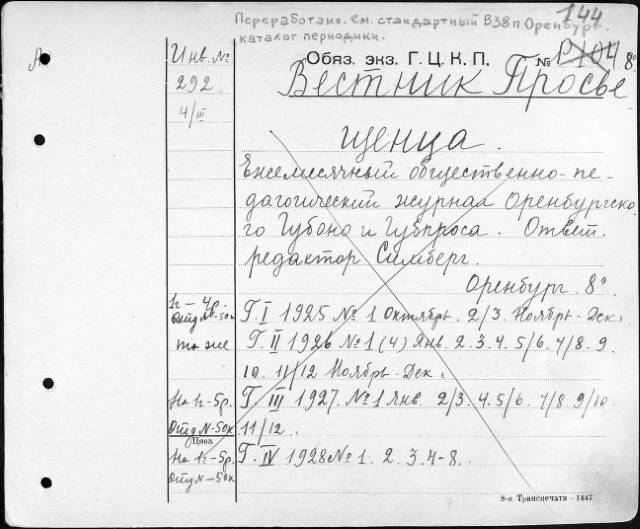 144
Переработано. См. стандартный В38п Оренбург.
каталог периодики.
Инв. №
292
4/III
Обяз. экз. Г. Ц. К. П. № Р104 8°
Вестник Просве
щенца.
Ежемесячный общественно-пе-
дагогический журнал Оренбургско
го Губоно и Губпроса. Ответ.
редактор Симберг.
Оренбург. 8°
1г - 4р.
Отд № - 50к
Г. I 1925 № 1 Октябрь. 2/3. Ноябрь-Дек.
то же
Г. II 1926 № 1 (4) Янв. 2. 3. 4. 5/6. 7/8. 9.
10. 11/12 Ноябрь-Дек.
На 1г - 5р.
Г. III 1927. № 1 Янв. 2/3. 4. 5/6. 7/8. 9/10.
Отд № - 50к
11/12.
Цена
На 1г - 5р.
Г. IV 1928 № 1. 2. 3. 4-8.
Отд № - 50к
8-я Транспечати - 1447